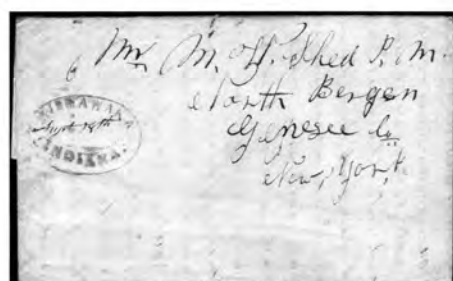 Mr. M. H. Shed P. M.
North Bergen
Genesee Co
New, York
MISHAWAKA
Sept 19th
INDIANA.